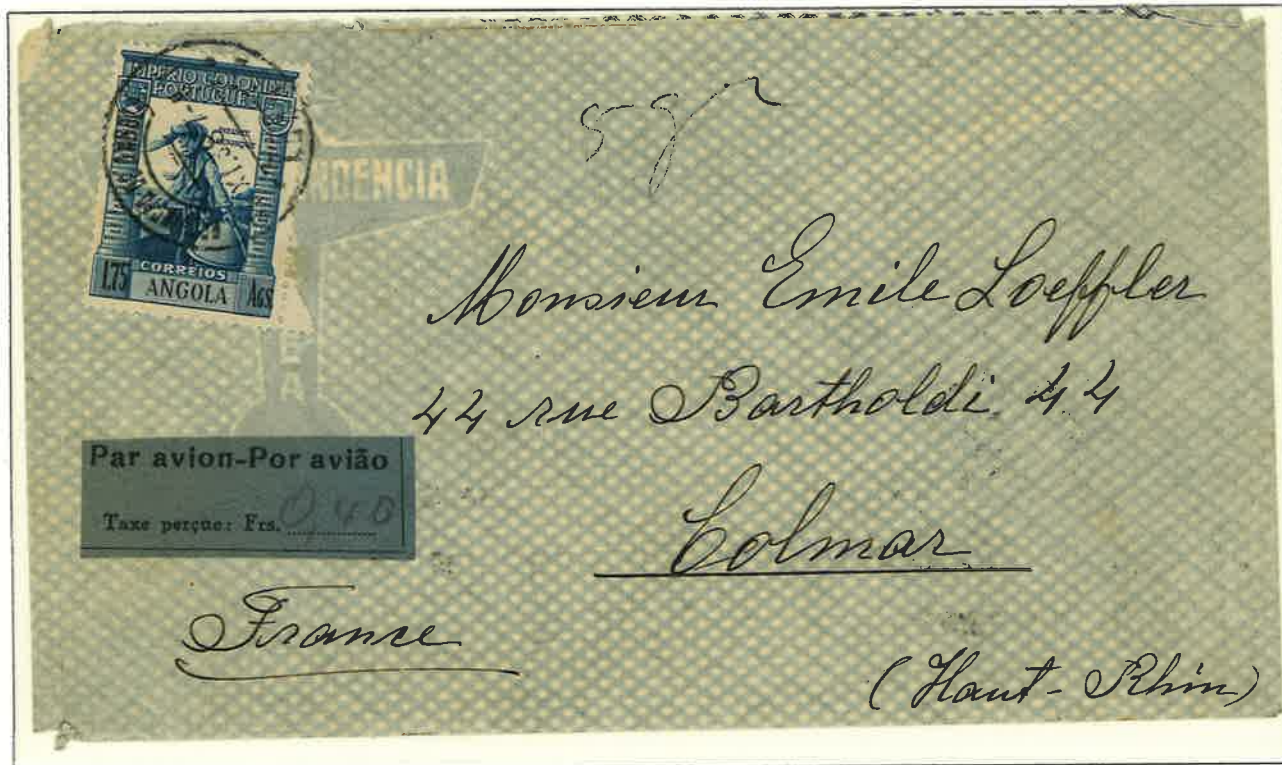 IMPÉRIO COLONIAL
PORTUGUÊS
CORREIOS
1.75 ANGOLA AGS
Par avion-Por avião
Taxe perçue: Frs. 0,40
Monsieur Emile Loeffler
44 rue Bartholdi 44
Colmar
France
(Haut-Rhin)